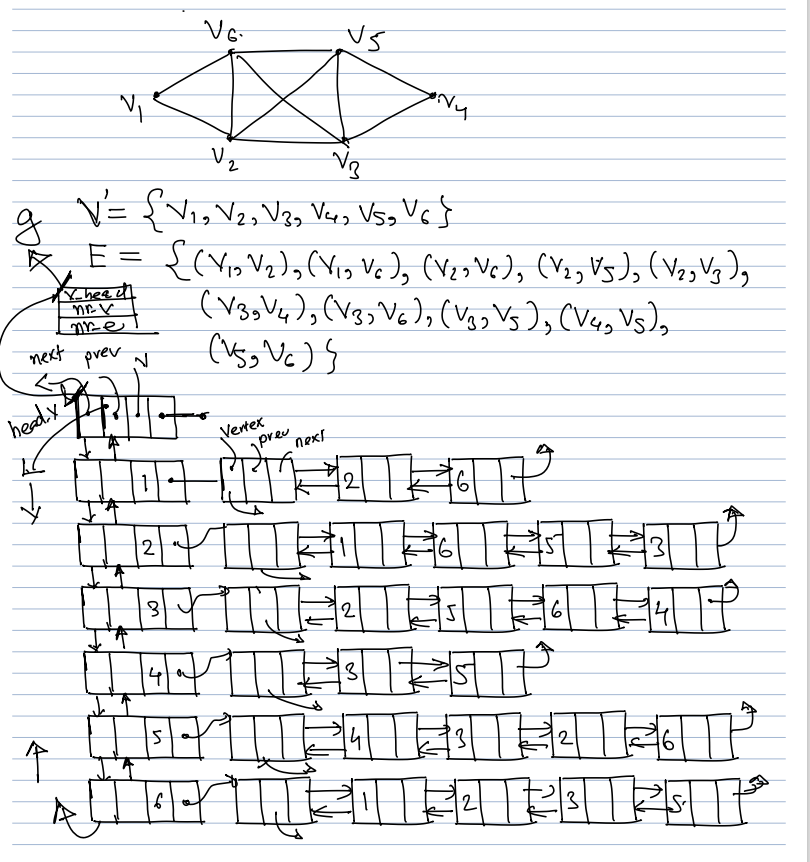 V6. V5
V1 V4
V2 V3
g V' = {V1, V2, V3, V4, V5, V6}
E = {(V1, V2), (V1, V6), (V2, V6), (V2, V5), (V2, V3),
v_head
(V3, V4), (V3, V6), (V3, V5), (V4, V5),
nr_v
nr_e
(V5, V6)}
next prev V
head.v
vertex prev next
1 2 6
2 1 6 5 3
3 2 5 6 4
4 3 5
5 4 3 2 6
6 1 2 3 5